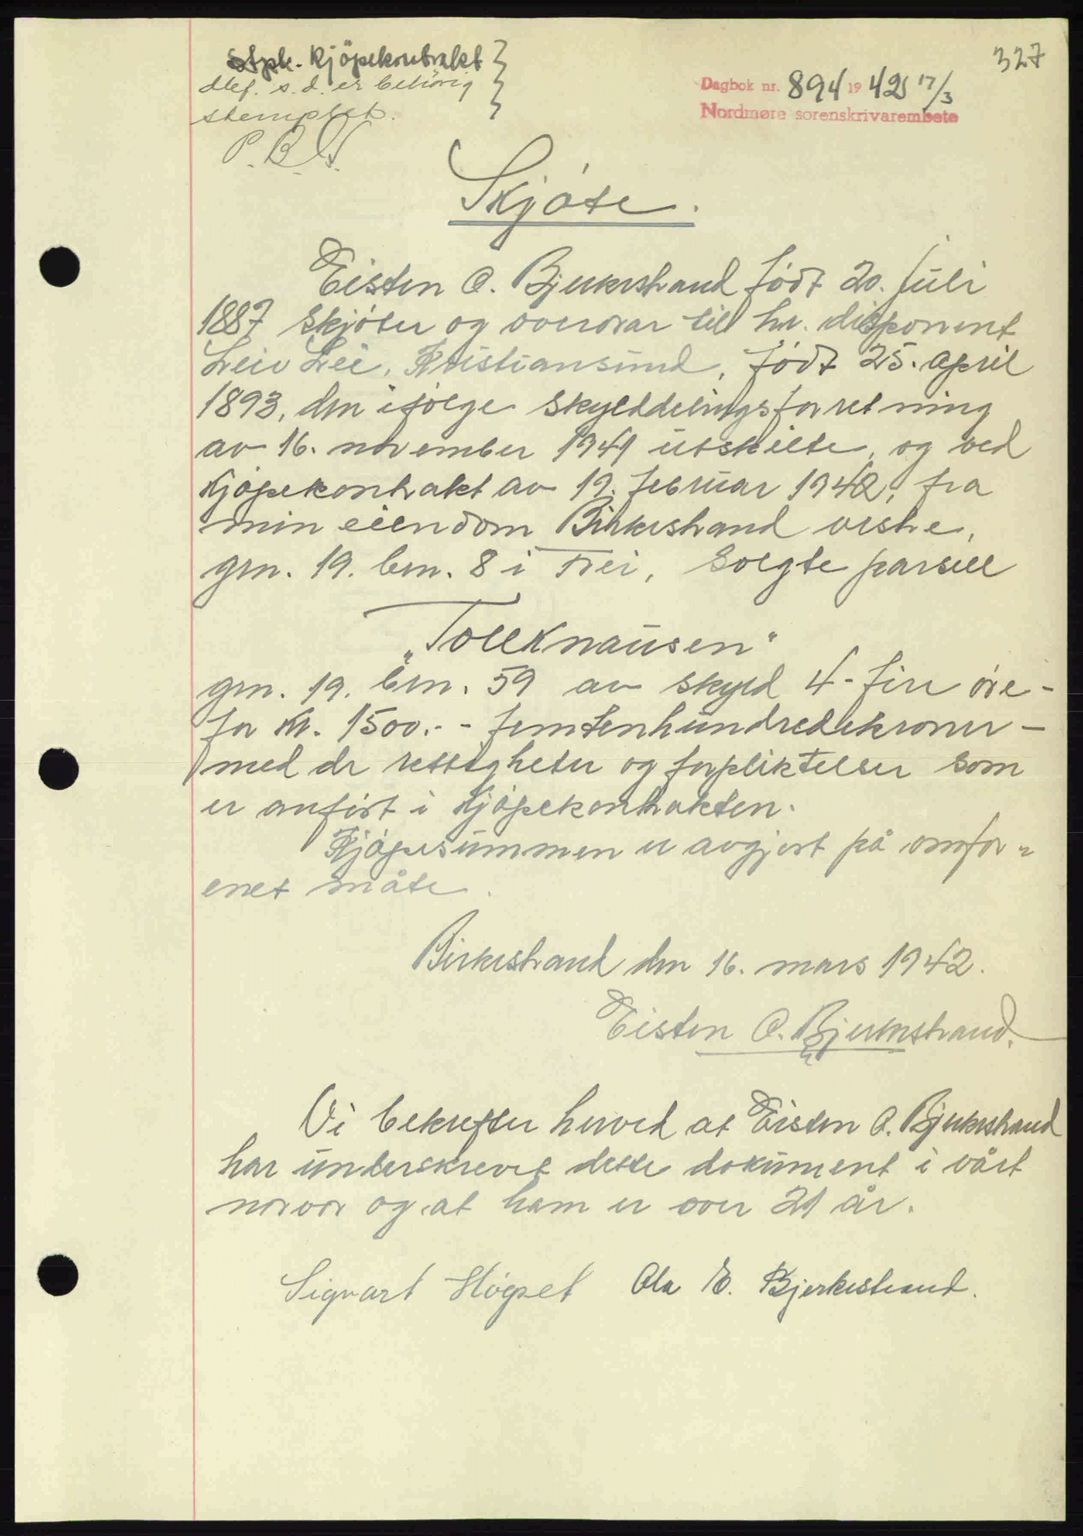 327
Kjöpekontrakt
dlef. s. d. er behörig
stemplet.
Dagbok nr. 894 1942 17/3
Nordmøre sorenskrivarembete
Skjöte.
Eisten O. Bjerkestrand født 20. juli
1887 skjöter og overdrar til hr. disponent
Leiv Lei, Kristiansund, født 25. april
1893, den ifölge skylddelingsforretning
av 16. november 1941 utskilte, og ved
kjöpekontrakt av 19. februar 1942, fra
min eiendom Birkestrand vestre,
grn. 19. brn. 8 i Frei, solgte parsell
„Tollknausen"
grn. 19. brn. 59 av skyld 4 - fire öre -
for kr. 1500.- - femtenhundredekroner -
med de rettigheter og forpliktelser som
er anfört i kjöpekontrakten.
Kjöpesummen er avgjort på omfor-
enet måte.
Birkestrand den 16. mars 1942.
Eisten O. Bjerkestrand.
Vi bekrefter herved at Eisten O. Bjerkestrand
har underskrevet dette dokument i vårt
nærvær og at ham er over 21 år.
Sigvart Högset Ola E. Bjerkestrand.